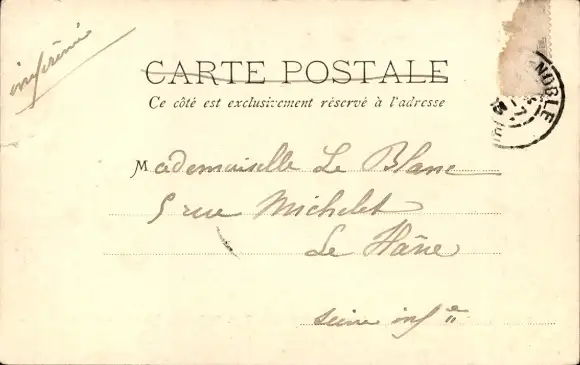 imprimé
CARTE POSTALE
Ce côté est exclusivement réservé à l'adresse
Mademoiselle Le Blanc
5 rue Michelet
Le Hâvre
Seine infre
NOBLE